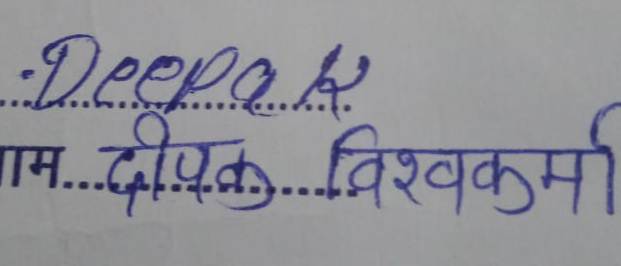 Deepak
नाम दीपक विश्वकर्मा